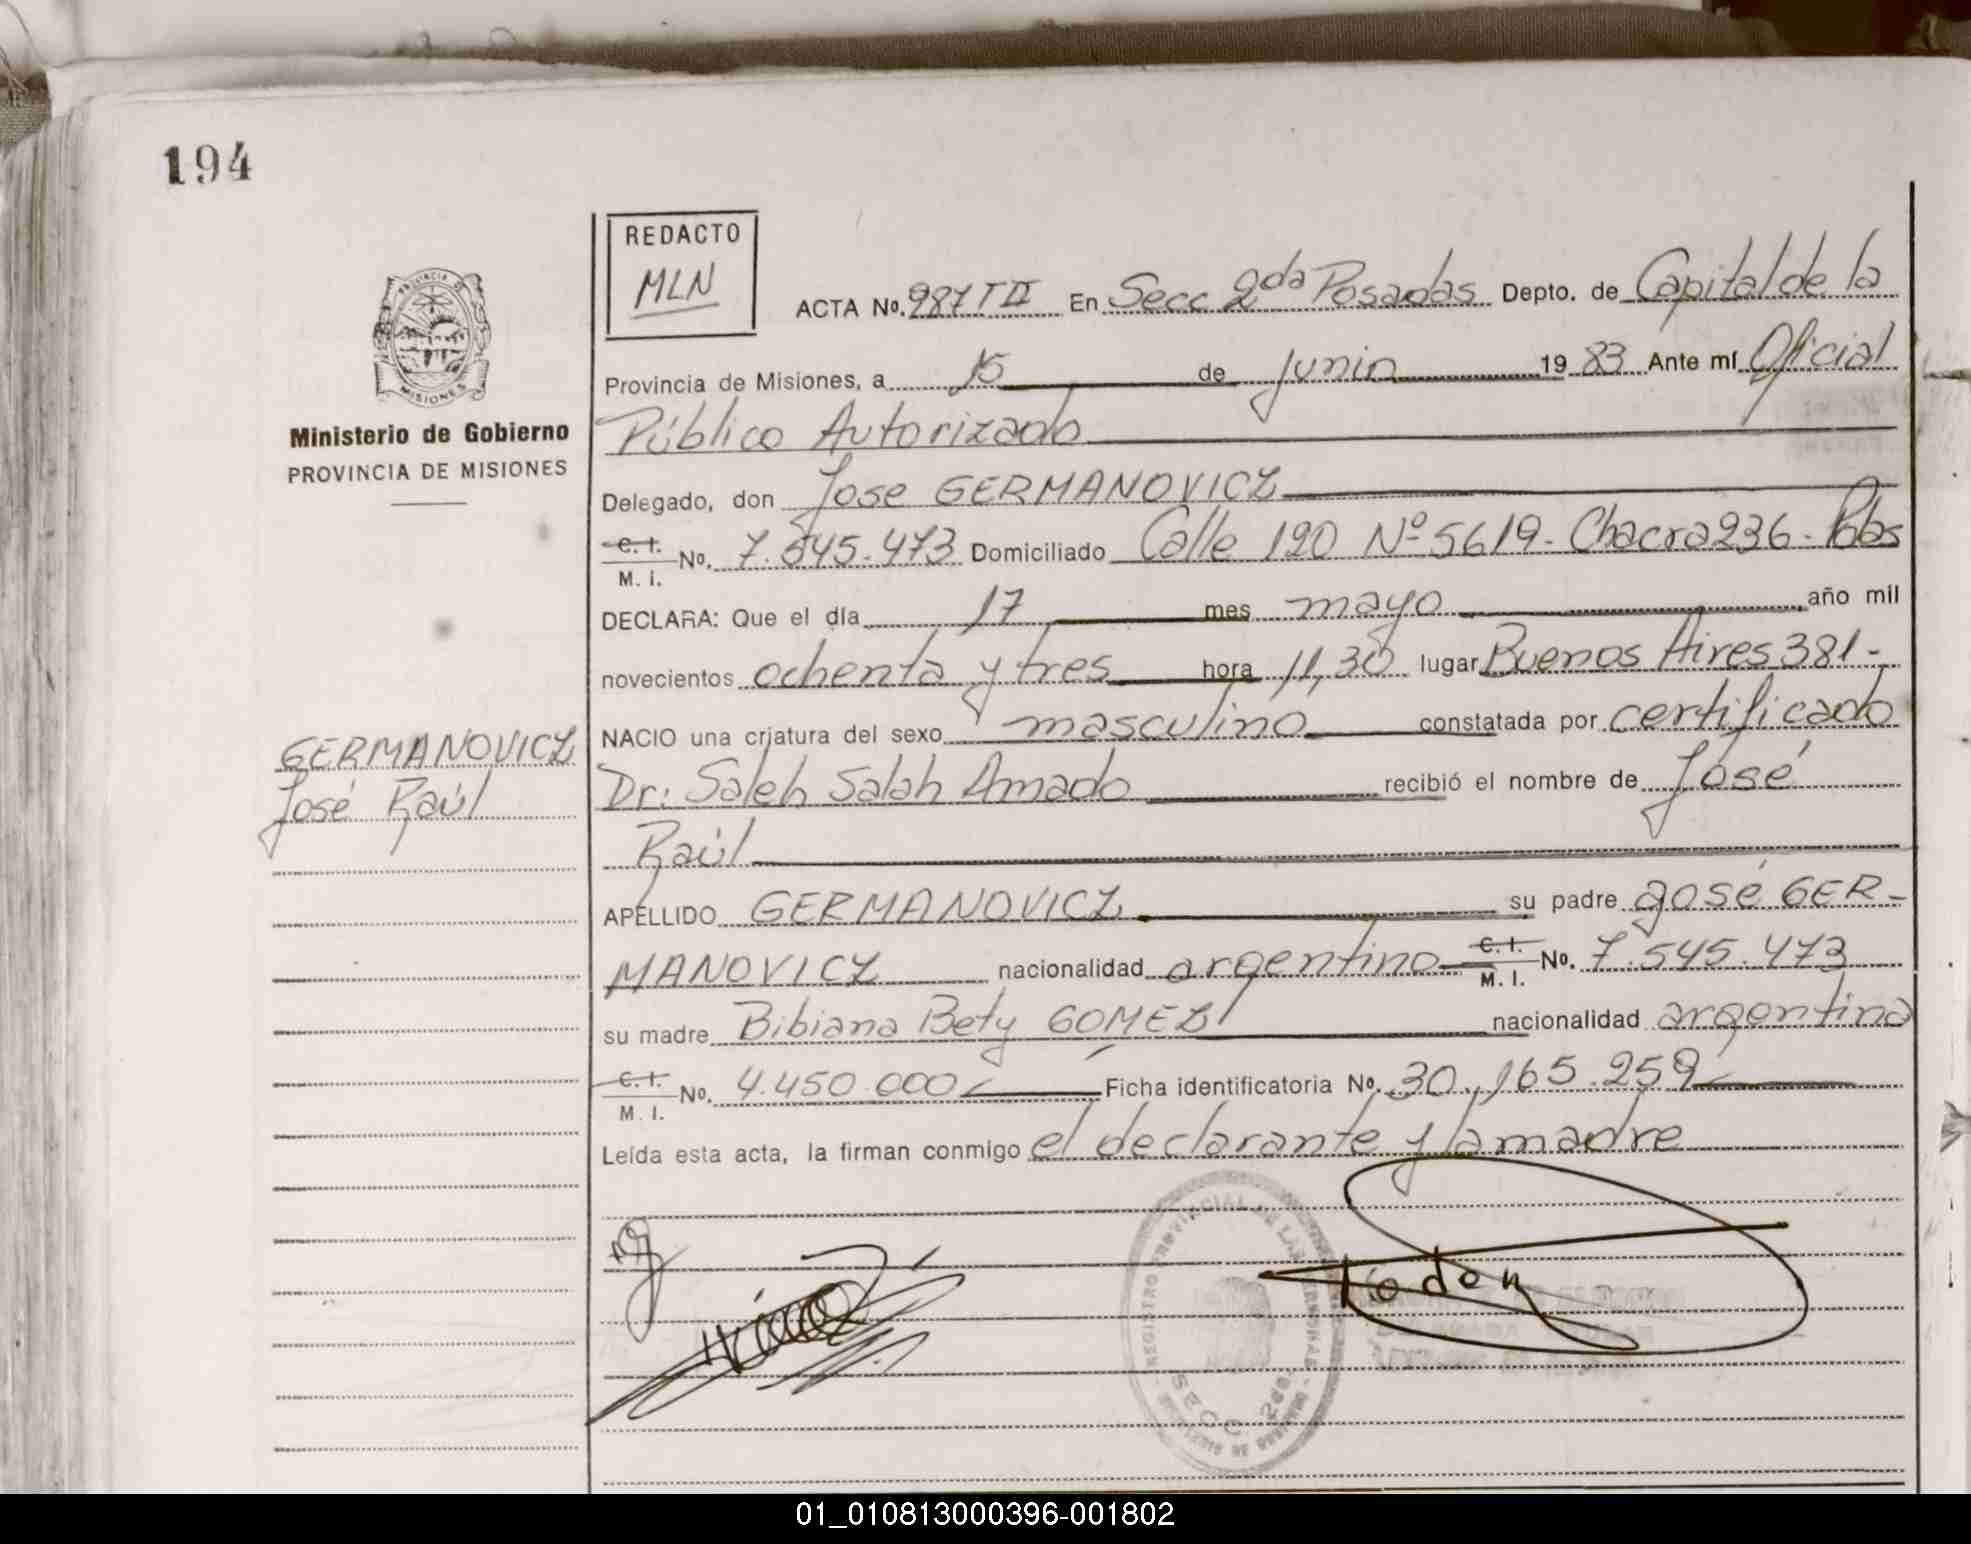 194
REDACTO
MLN
ACTA No. 987 T II En Secc 2da Posadas Depto. de Capital de la
Provincia de Misiones, a 15 de Junio 1983 Ante mí Oficial
Público Autorizado
Delegado, don Jose GERMANOVICZ
C. I. M. I. No. 7.545.473 Domiciliado Calle 190 Nº 5619 - Chacra 236 - Pdas
DECLARA: Que el día 17 mes mayo año mil
novecientos ochenta y tres hora 11,30 lugar Buenos Aires 381 -
NACIO una criatura del sexo masculino constatada por certificado
Dr: Saleh Salah Amado recibió el nombre de José
Raúl
APELLIDO GERMANOVICZ su padre José GER-
MANOVICZ nacionalidad argentino C. I. M. I. No. 7.545.473
su madre Bibiana Bety GÓMEZ nacionalidad argentina
C. I. M. I. No. 4.450.000 Ficha identificatoria No. 30.165.259
Leída esta acta, la firman conmigo el declarante y la madre
PROVINCIA DE
MISIONES
Ministerio de Gobierno
PROVINCIA DE MISIONES
GERMANOVICZ
José Raúl
REGISTRO PROVINCIAL DE LAS PERSONAS
SECC. 2da.
01_010813000396-001802